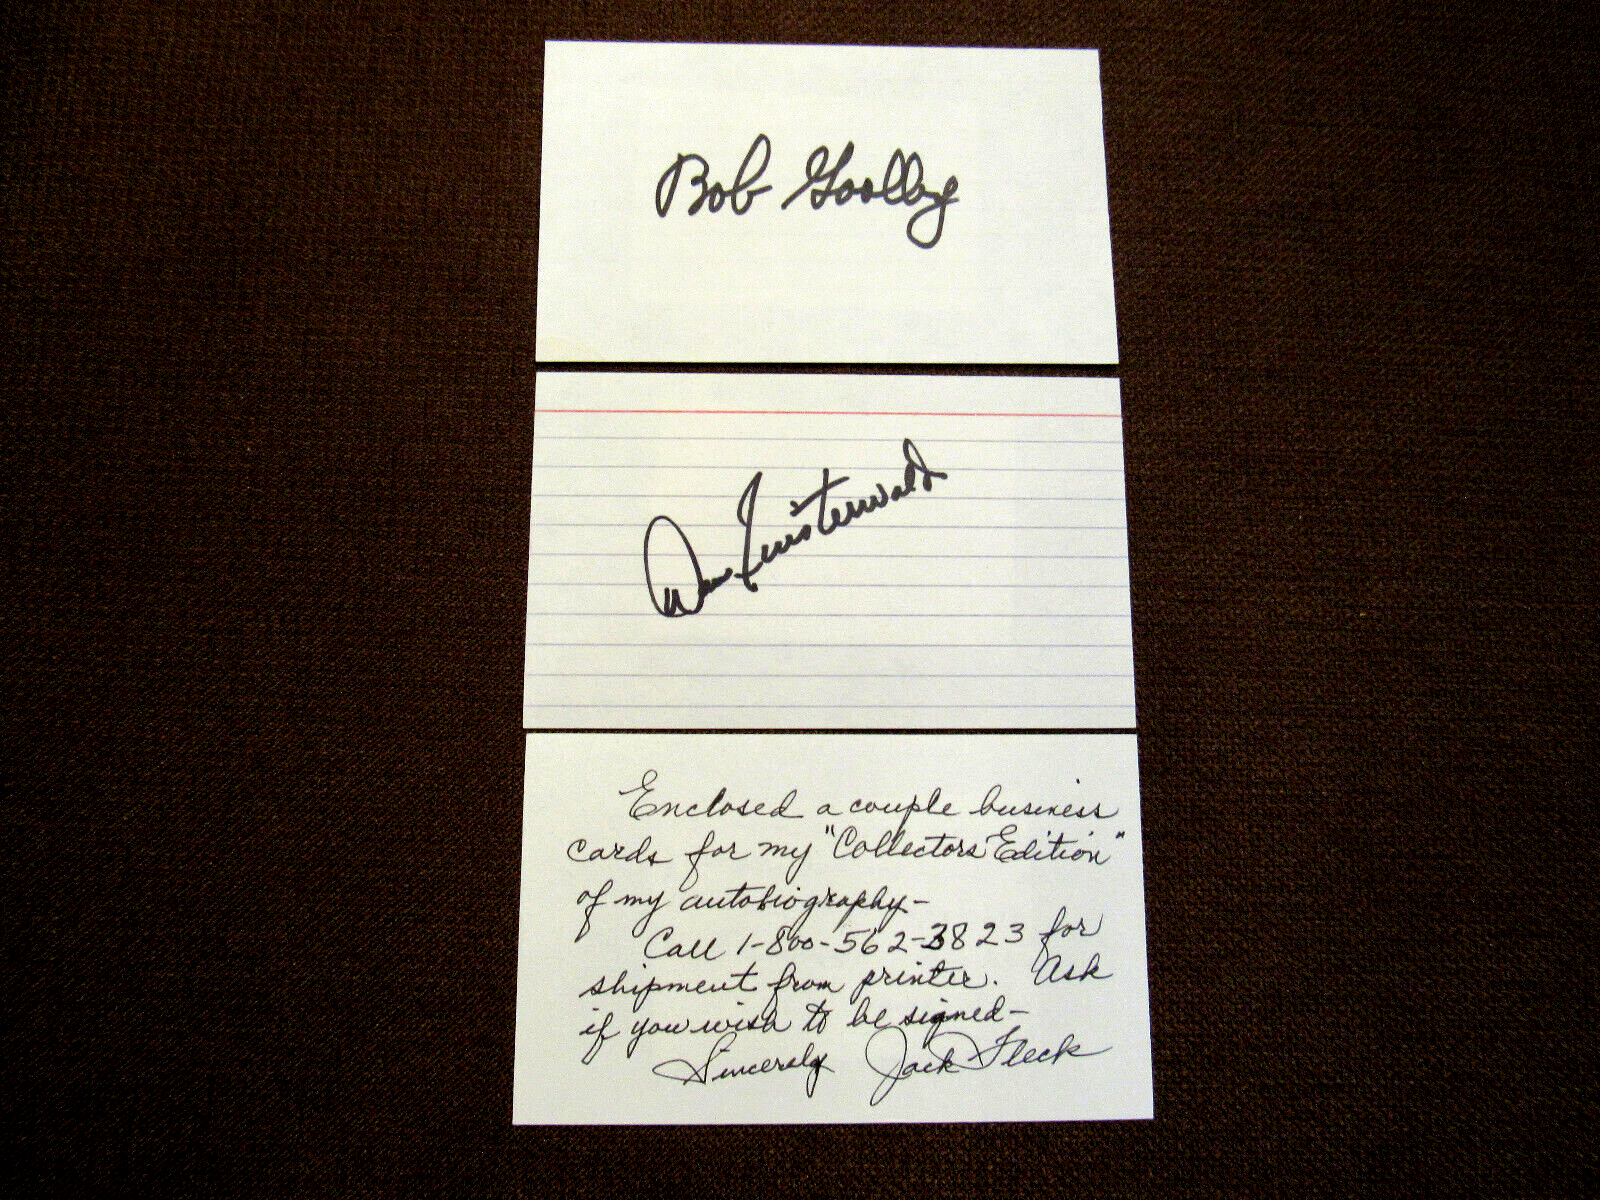 Bob Goalby
Dow Finsterwald
Enclosed a couple business
cards for my "Collectors Edition"
of my autobiography-
Call 1-800-562-3823 for
shipment from printer. Ask
if you wish to be signed-
Sincerely Jack Fleck